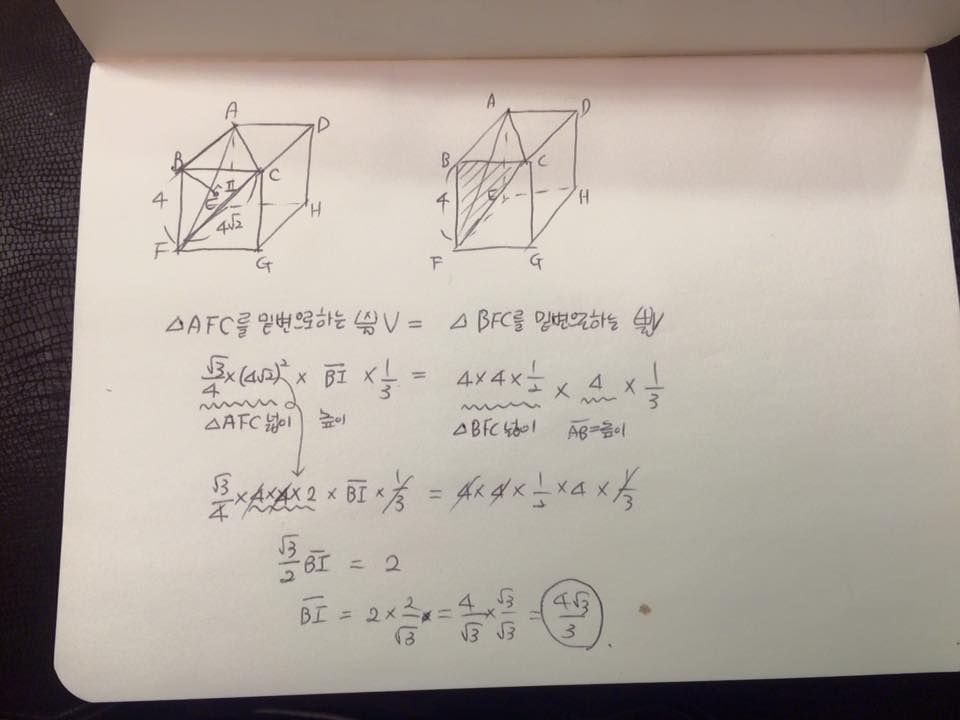 A
D
B
C
I
E
4
4√2
H
F
G
A
D
B
C
E
4
H
F
G
△AFC를 밑변으로하는 V = △BFC를 밑변으로하는 V
√3/4 × (4√2)² × B̅I̅ × 1/3 = 4 × 4 × 1/2 × 4 × 1/3
△AFC 넓이 높이 △BFC 넓이 A̅B̅=높이
√3/4 × 4 × 4 × 2 × B̅I̅ × 1/3 = 4 × 4 × 1/2 × 4 × 1/3
√3/2 B̅I̅ = 2
B̅I̅ = 2 × 2/√3 = 4/√3 × √3/√3 = 4√3/3.